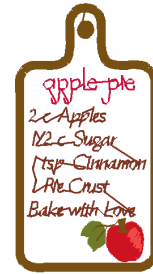 apple pie
2 c Apples
1/2 c Sugar
1 tsp Cinnamon
1 Pie Crust
Bake with Love